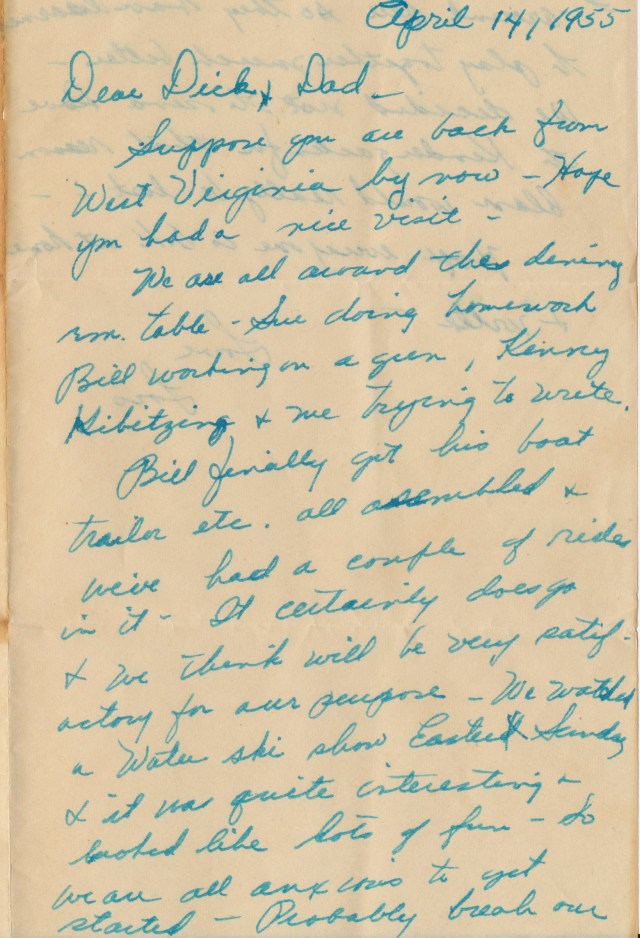 April 14, 1955
Dear Dick & Dad -
Suppose you are back from
West Virginia by now - Hope
you had a nice visit -
We are all around the dining
rm. table - Sue doing homework
Bill working on a gun, Kenny
Kibitzing & me trying to write.
Bill finally got his boat
trailer etc. all assembled &
weive had a couple of rides
in it - It certainly does go
& we think will be very satif-
actory for our purpose - We watched
a Water ski show Easter Sunday
& it was quite interesting &
looked like lots of fun - So
we are all anxious to get
started - Probably break our